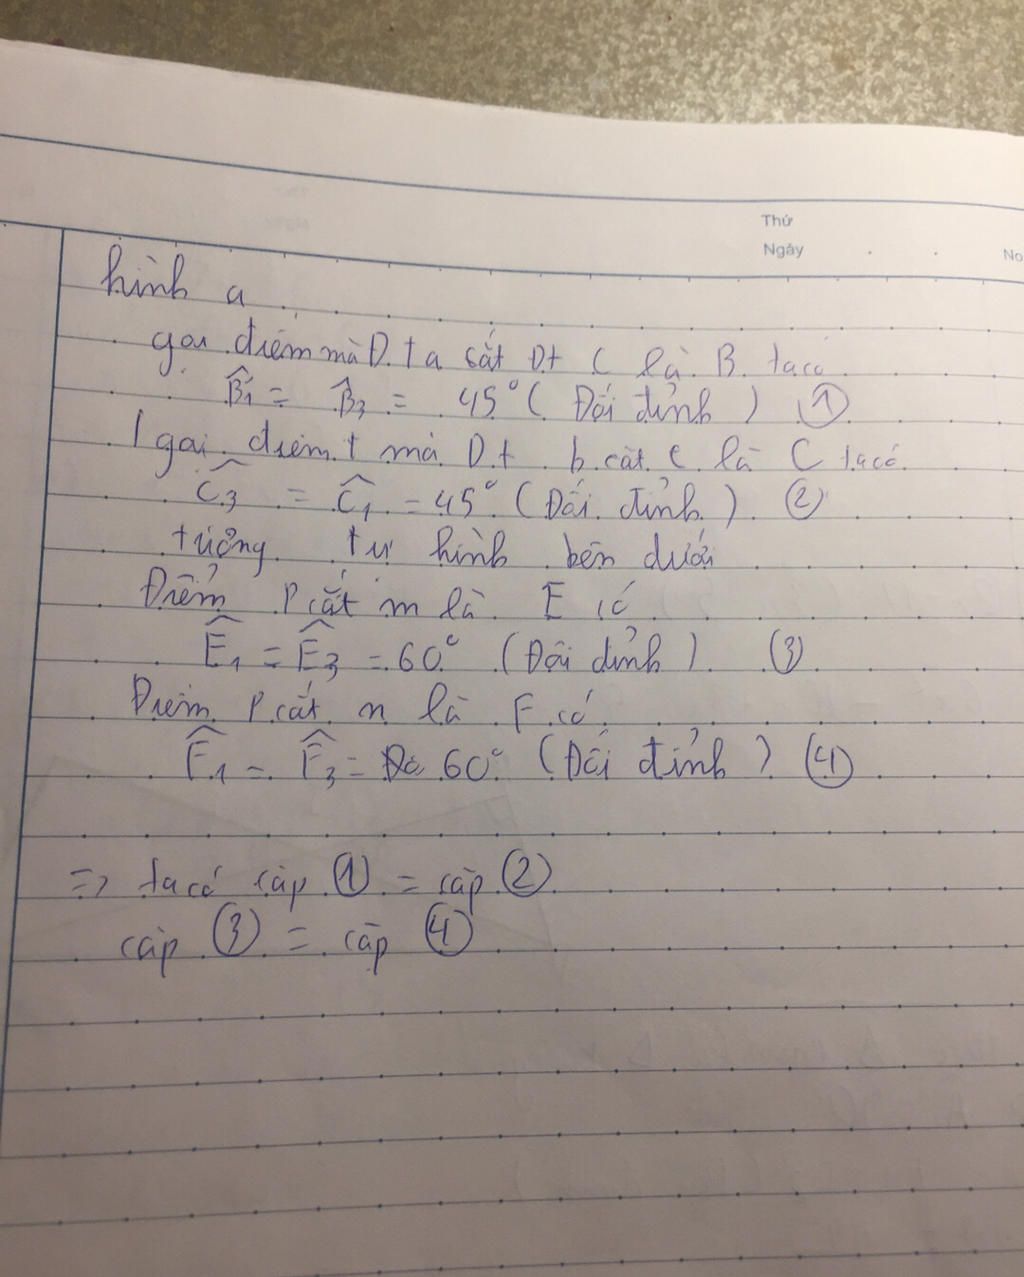 Thứ
Ngày
No
hình a
gọi điểm mà D.t a cắt Dt C là B. ta có
B̂1 = B̂3 = 45° (Đối đỉnh) ①
gọi điểm t mà D.t b cắt c là C ta có
Ĉ3 = Ĉ1 = 45° (Đối đỉnh) ②
tương tự hình bên dưới
Điểm P cắt m là E có
Ê1 = Ê3 = 60° (Đối đỉnh) ③
Điểm P cắt n là F có
F̂1 = F̂3 = 60° (Đối đỉnh) ④
=> ta có cặp ① = cặp ②
cặp ③ = cặp ④